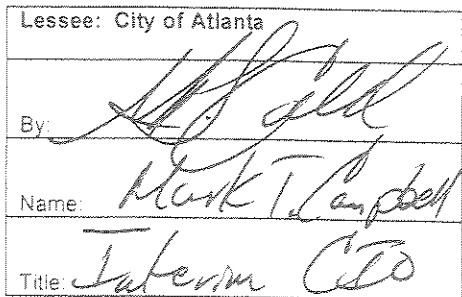 Lessee: City of Atlanta
By:
Name: Mark T. Campbell
Title: Interim CIO